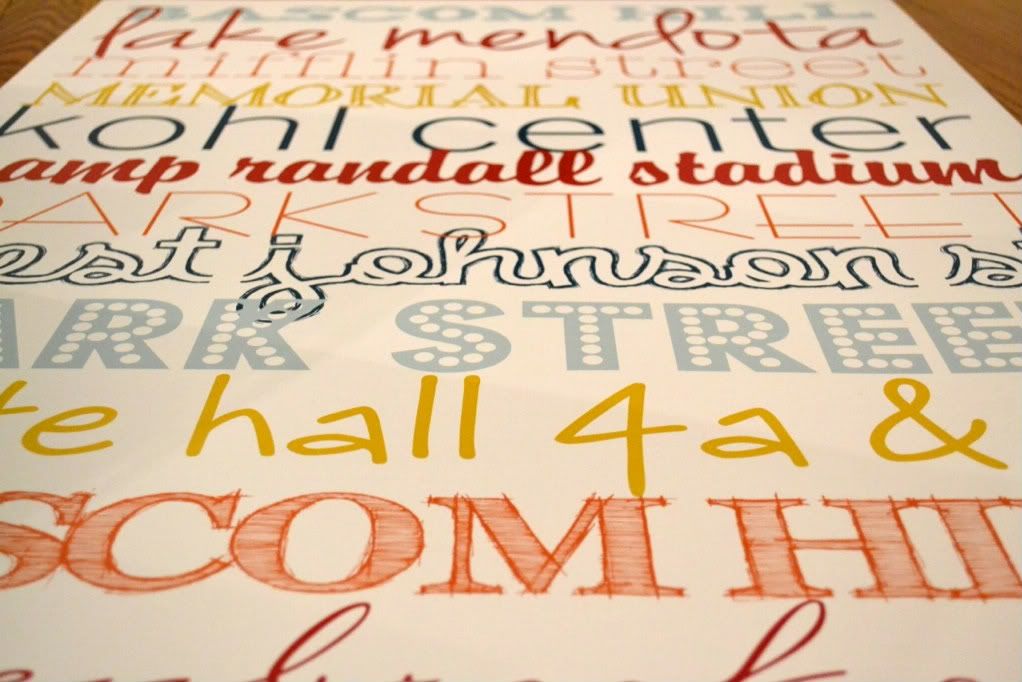 BASCOM HILL
lake mendota
mifflin street
MEMORIAL UNION
kohl center
amp randall stadium
PARK STREET
est johnson s
ARK STREE
te hall 4a &
SCOM HI